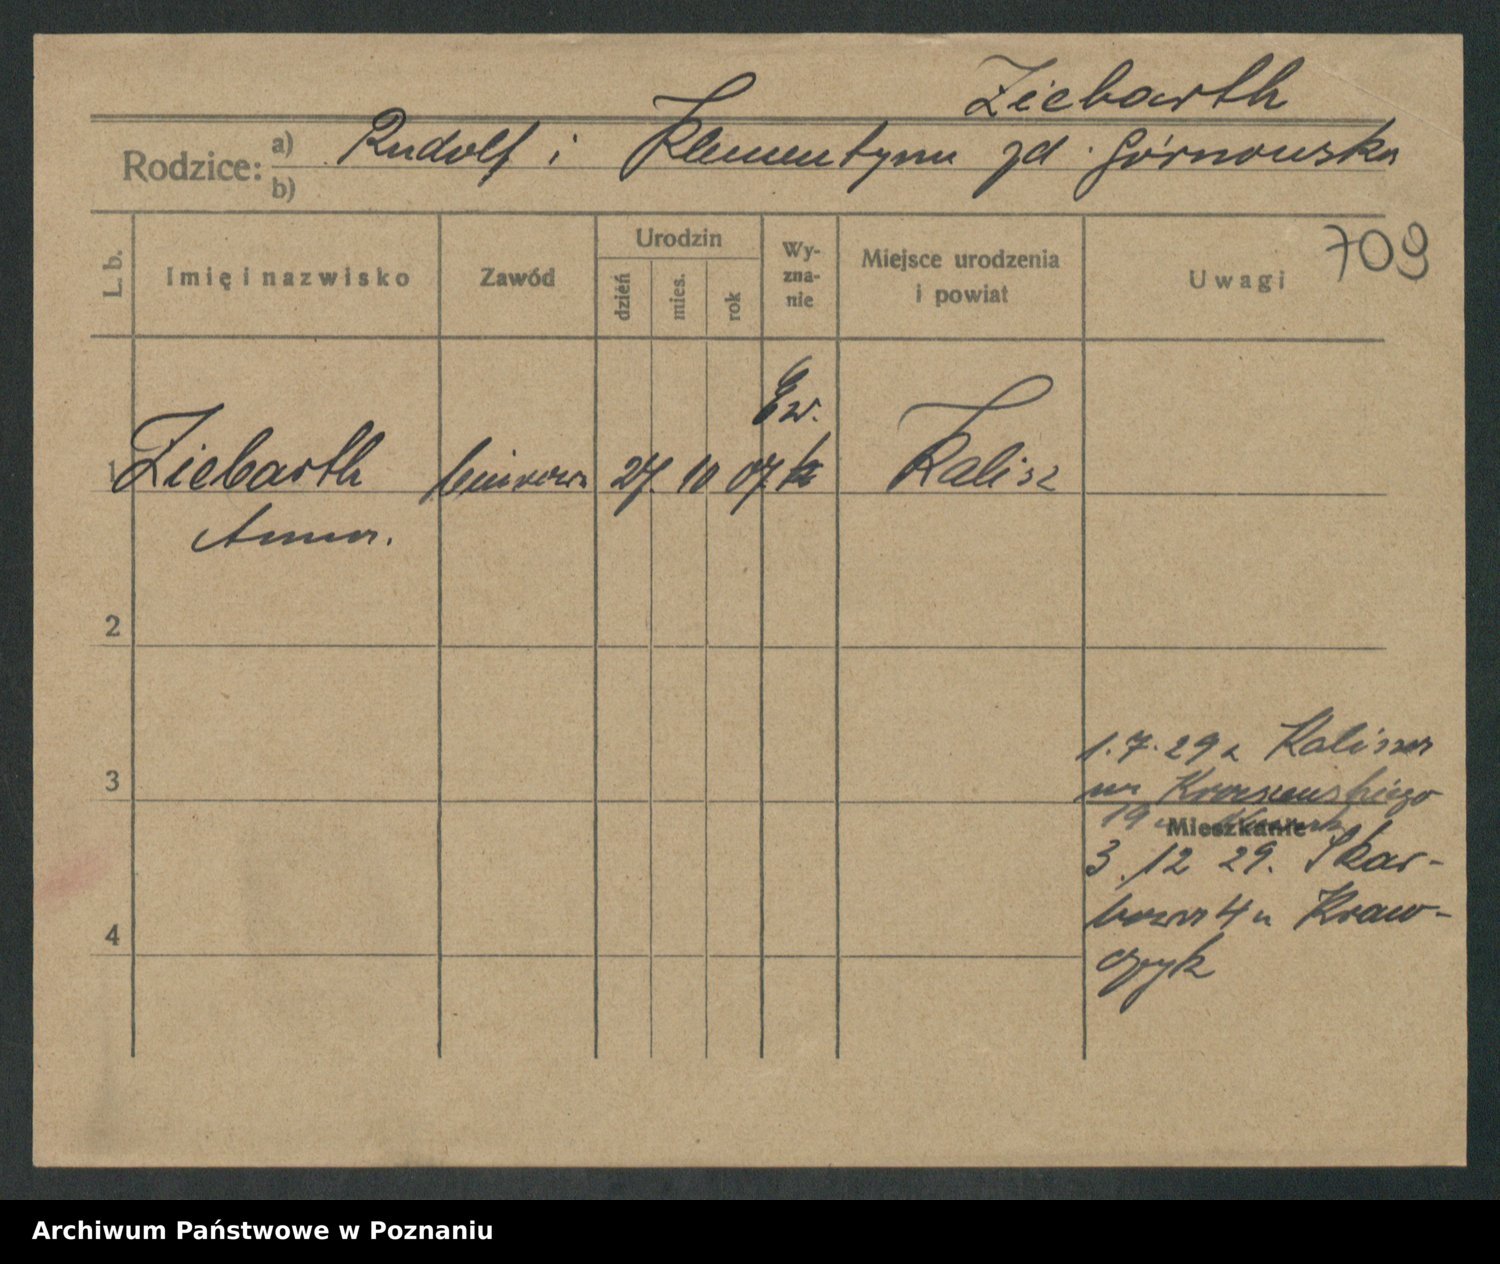 Ziebarth
Rodzice: a) Rudolf i Klementyna zd. Górnowska
b)
L. b.
Imię i nazwisko
Zawód
Urodzin
dzień
mies.
rok
Wy-
zna-
nie
Miejsce urodzenia
i powiat
Uwagi
709
Ew.
1 Ziebarth biurowa 27. 10 07 Kalisz
Anna.
2
3
4
1. 7. 29 z Kalisza
na Kraszewskiego
19 u
Mieszkanie
3. 12 29. Skar-
bowa 4 u Kraw-
czyk
Archiwum Państwowe w Poznaniu